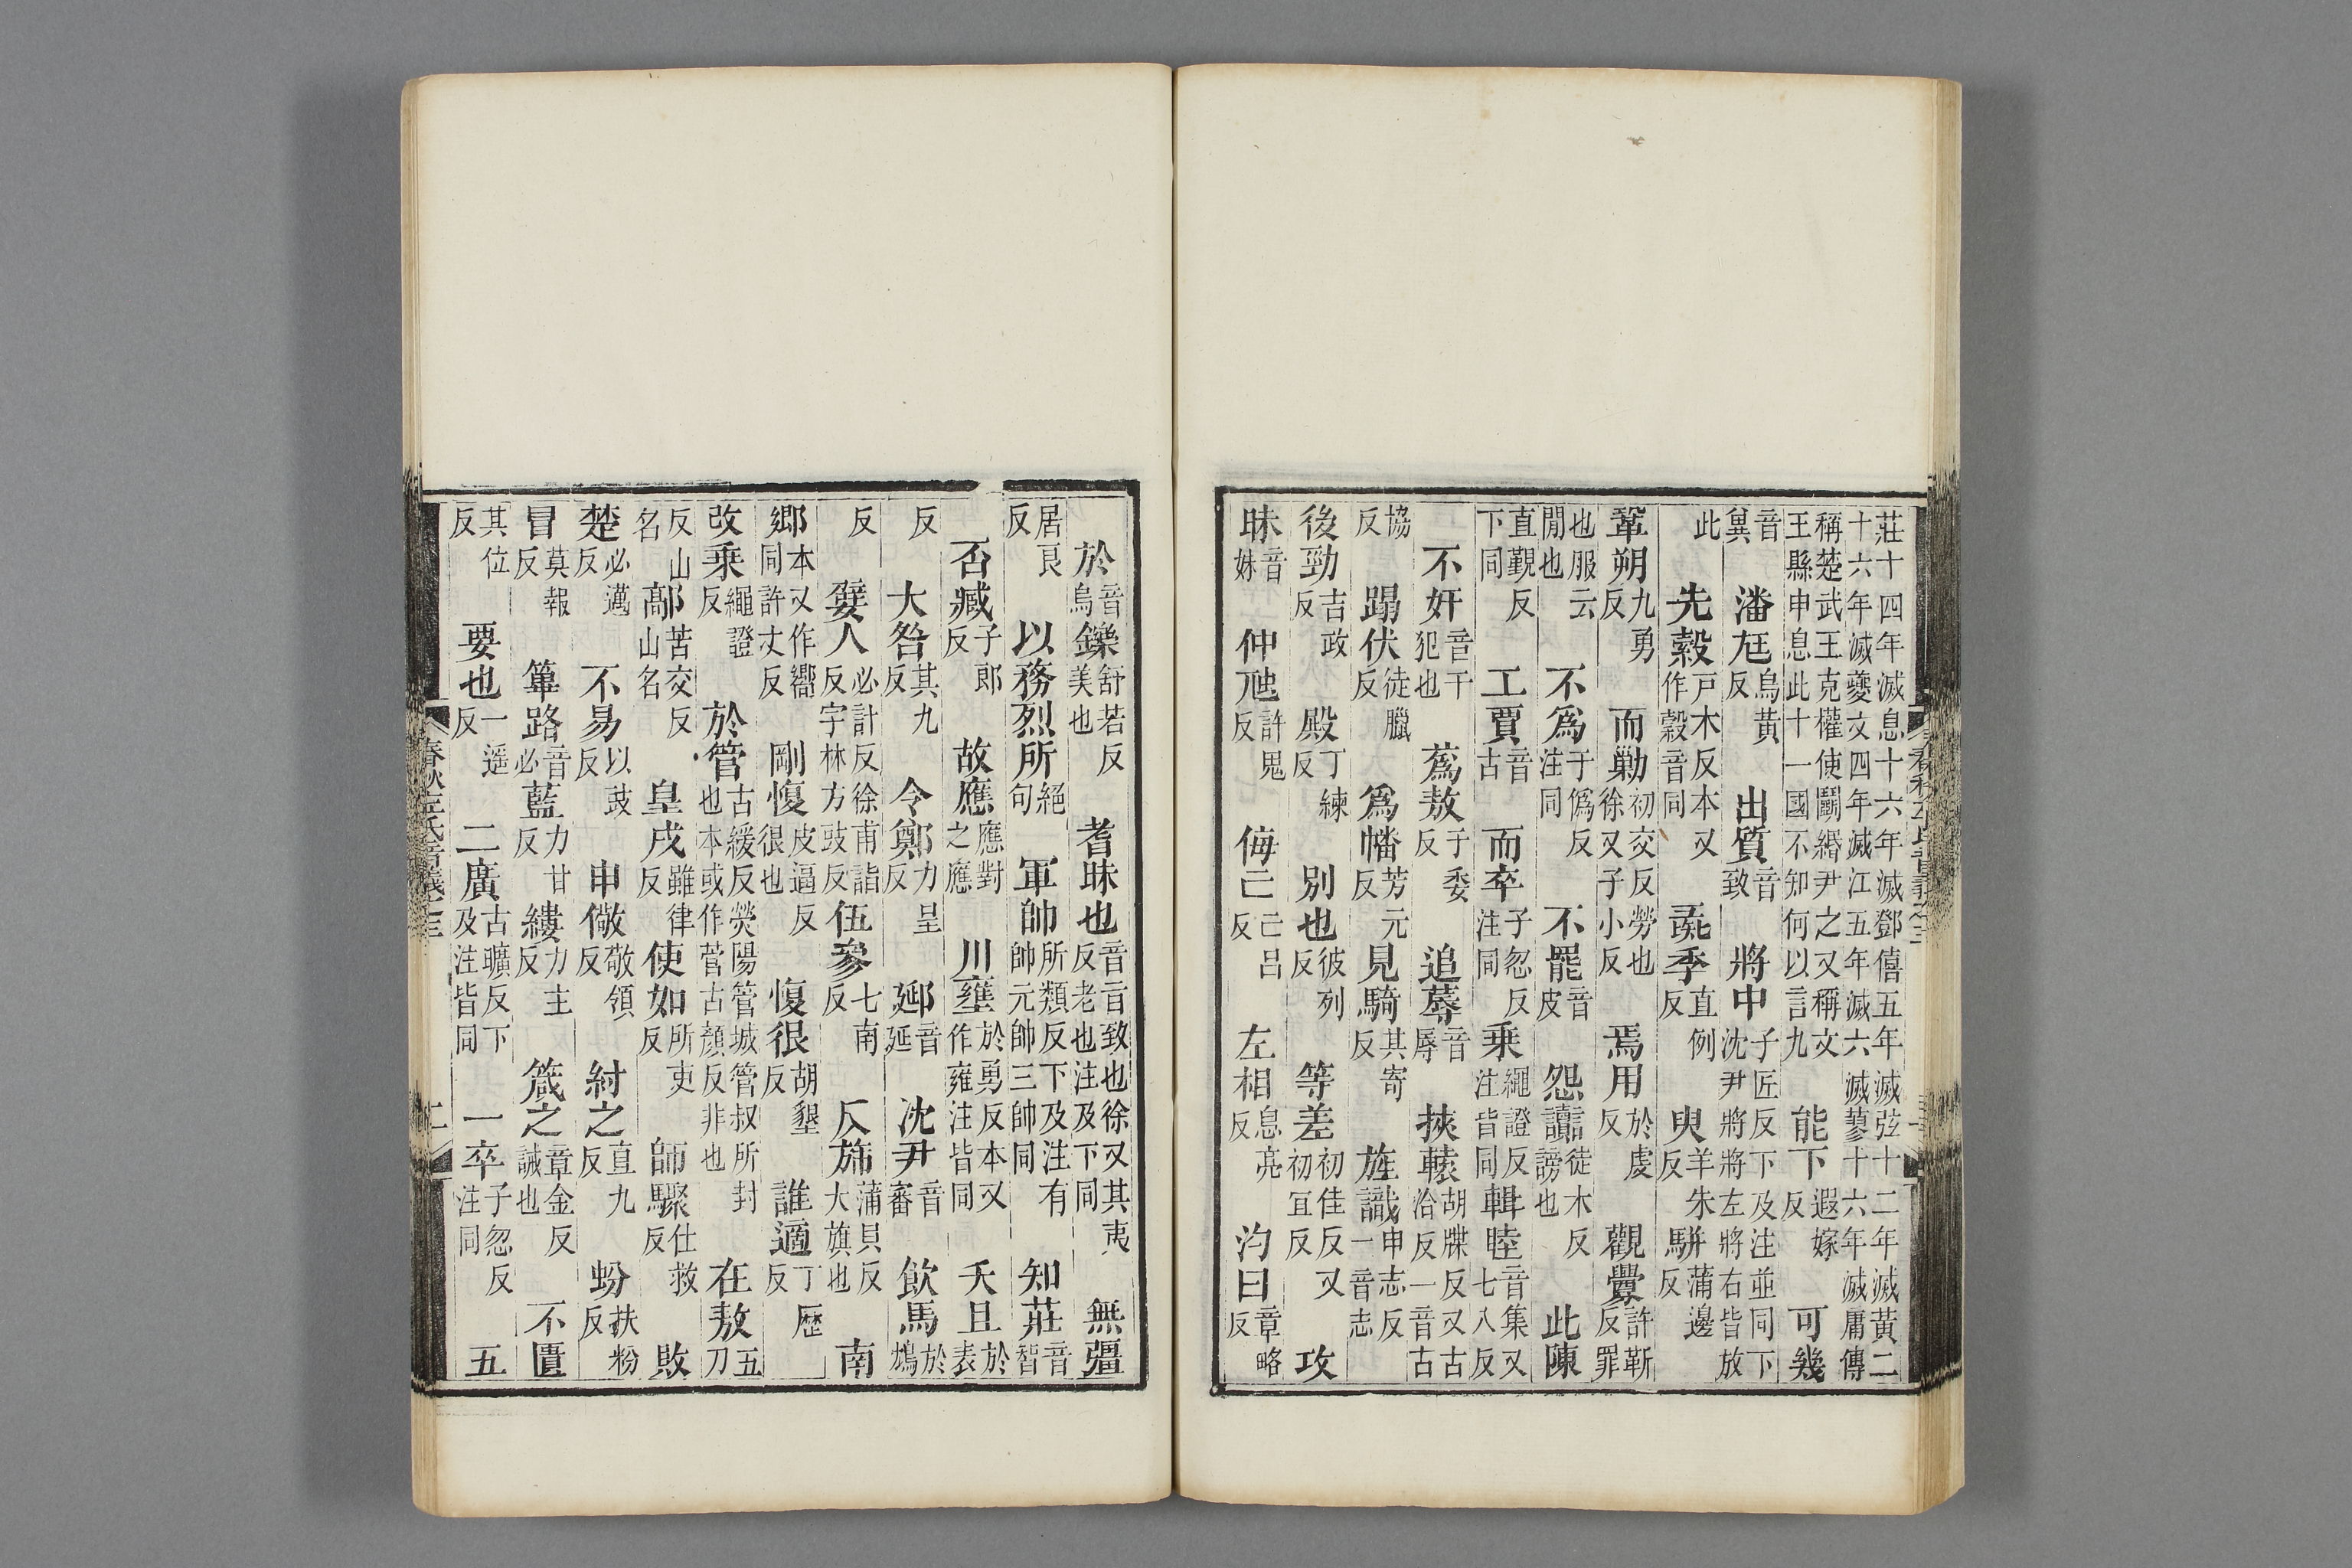 莊十四年滅息十六年滅鄧僖五年滅弦十二年滅黃二十六年滅夔文四年滅江五年滅六滅蓼十六年滅庸傳
稱楚武王克權使鬭緡尹之又稱文王縣申息此十一國不知何以言九 能下遐嫁反 可幾
音冀 潘尪烏黃反 出質音致 將中子匠反下及注並同下沈尹將將左將右皆放
此 先縠戶木反本又作穀音同 彘季直例反 臾羊朱反 駢蒲邊反
鞏朔九勇反 而勦初交反勞也徐又子小反 焉用於虔反 觀釁許靳反罪
也服云閒也 不爲于僞反注同 不罷音皮 怨讟徒木反謗也 此陳
直覲反下同 工賈音古 而卒子忽反注同 乘繩證反注皆同 輯睦音集又七八反
不奸音干犯也 蒍敖于委反 追蓐音辱 挾轅胡牒反又古洽反一音古
協反 蹋伏徒臘反 爲幡芳元反 見騎其寄反 旌識申志反一音志
後勁吉政反 殿丁練反 別也彼列反 等差初佳反又初宜反 攻
昧音妹 仲虺許鬼反 侮亡亡呂反 左相息亮反 汋曰章略反
於音烏 鑠舒若反美也 耆昧也音旨致也徐又其夷反老也注及下同 無疆
居良反 以務烈所絕句 軍帥所類反下及注有帥元帥三帥同 知莊音智
否臧子郎反 故應應對之應 川壅於勇反本又作雍注皆同 夭且於表
反 大咎其九反 令鄭力呈反 郔音延 沈尹音審 飲馬於鴆
反 嬖人必計反徐甫詣反字林方豉反 伍參七南反 反旆蒲貝反大旗也 南
鄉本又作嚮同許丈反 剛愎皮逼反很也 愎很胡墾反 誰適丁歷反
改乘繩證反 於管古緩反熒陽管城管叔所封也本或作菅古顏反非也 在敖五刀
反山名 鄗苦交反山名 皇戌雖律反 使如所吏反 師驟仕救反 敗
楚必邁反 不易以豉反 申儆敬領反 紂之直九反 蚡扶粉反
冒莫報反 篳路音必 藍力甘反 縷力主反 箴之章金反誡也 不匱
其位反 要也一遥反 二廣古曠反下及注皆同 一卒子忽反注同 五
春秋左氏音義之三 二